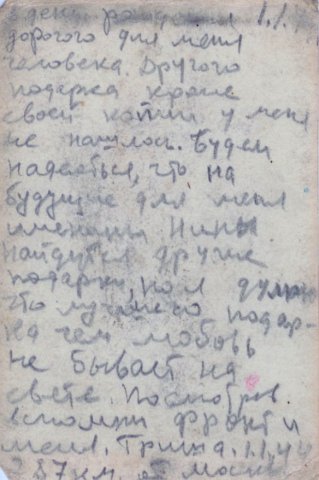 В день рождения 1.1.
дорогого для меня
человека. Другого
подарка кроме
своей копии у меня
не нашлось. Будем
надеяться, что на
будущие для меня
именины Нины
найдутся другие
подарки, но я думаю
что лучшего подар-
ка чем любовь
не бывает на
свете. Посмотрев
вспомни фронт и
меня. Гриша. 1.1.44
87 км. от Москвы